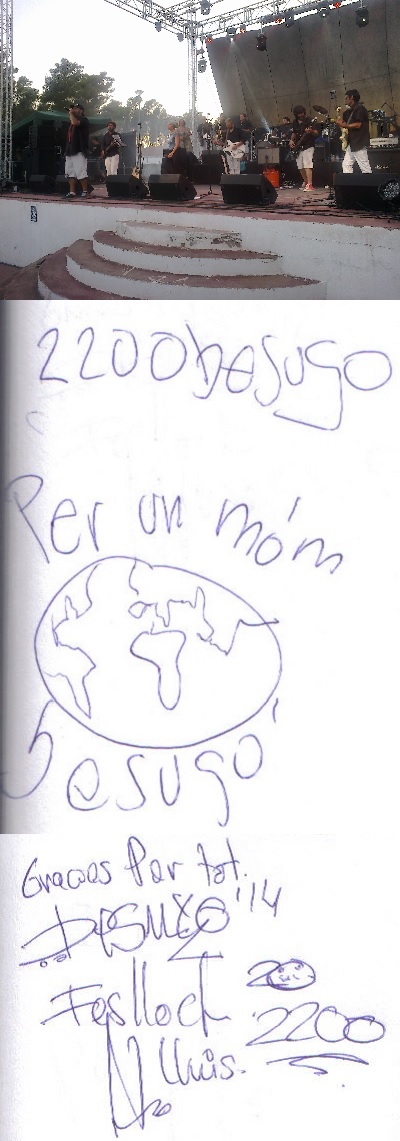 2200besugo
Per un móm
besugo!
Gracies Per tot.
Besugo '14
Feslloch 20
2200
Lluís.